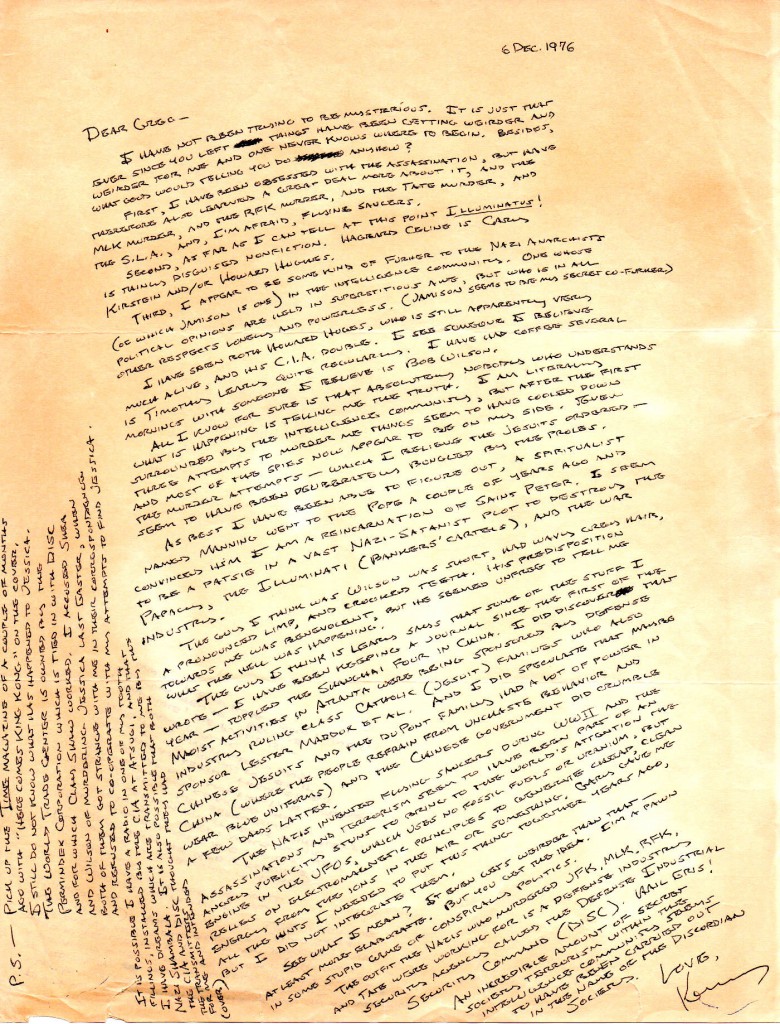 6 DEC. 1976
DEAR GREG —
I HAVE NOT BEEN TRYING TO BE MYSTERIOUS. IT IS JUST THAT
EVER SINCE YOU LEFT THINGS HAVE BEEN GETTING WEIRDER AND
WEIRDER FOR ME AND ONE NEVER KNOWS WHERE TO BEGIN. BESIDES,
WHAT GOOD WOULD TELLING YOU DO ANYHOW?
FIRST, I HAVE BEEN OBSESSED WITH THE ASSASSINATION, BUT HAVE
THEREFORE ALSO LEARNED A GREAT DEAL MORE ABOUT IT, AND THE
MLK MURDER, AND THE RFK MURDER, AND THE TATE MURDER, AND
THE S.L.A., AND, I'M AFRAID, FLYING SAUCERS.
SECOND, AS FAR AS I CAN TELL AT THIS POINT ILLUMINATUS!
IS THINLY DISGUISED NONFICTION. HAGBARD CELINE IS GARY
KIRSTEIN AND/OR HOWARD HUGHES.
THIRD, I APPEAR TO BE SOME KIND OF FURHER TO THE NAZI ANARCHISTS
(OF WHICH JAMISON IS ONE) IN THE INTELLIGENCE COMMUNITY. ONE WHOSE
POLITICAL OPINIONS ARE HELD IN SUPERSTITIOUS AWE, BUT WHO IS IN ALL
OTHER RESPECTS LONELY AND POWERLESS. (JAMISON SEEMS TO BE MY SECRET CO-FURHER.)
I HAVE SEEN BOTH HOWARD HUGES, WHO IS STILL APPARENTLY VERY
MUCH ALIVE, AND HIS C.I.A. DOUBLE. I SEE SOMEONE I BELIEVE
IS TIMOTHY LEARY QUITE REGULARLY. I HAVE HAD COFFEE SEVERAL
MORNINGS WITH SOMEONE I BELIEVE IS BOB WILSON.
ALL I KNOW FOR SURE IS THAT ABSOLUTELY NOBODY WHO UNDERSTANDS
WHAT IS HAPPENING IS TELLING ME THE TRUTH. I AM LITERALLY
SURROUNDED BY THE INTELLIGENCE COMMUNITY, BUT AFTER THE FIRST
THREE ATTEMPTS TO MURDER ME THINGS SEEM TO HAVE COOLED DOWN
AND MOST OF THE SPIES NOW APPEAR TO BE ON MY SIDE. EVEN
THE MURDER ATTEMPTS — WHICH I BELIEVE THE JESUITS ORDERED —
SEEM TO HAVE BEEN DELIBERATELY BUNGLED BY THE PROLES.
AS BEST I HAVE BEEN ABLE TO FIGURE OUT, A SPIRITUALIST
NAMED MANNING WENT TO THE POPE A COUPLE OF YEARS AGO AND
CONVINCED HIM I AM A REINCARNATION OF SAINT PETER. I SEEM
TO BE A PATSIE IN A VAST NAZI-SATANIST PLOT TO DESTROY THE
PAPACY, THE ILLUMINATI (BANKERS' CARTELS), AND THE WAR
INDUSTRY.
THE GUY I THINK WAS WILSON WAS SHORT, HAD WAVY GREY HAIR,
A PRONOUNCED LIMP, AND CROOKED TEETH. HIS PREDISPOSITION
TOWARDS ME WAS BENEVOLENT, BUT HE SEEMED UNFREE TO TELL ME
WHAT THE HELL WAS HAPPENING.
THE GUY I THINK IS LEARY SAYS THAT SOME OF THE STUFF I
WROTE — I HAVE BEEN KEEPING A JOURNAL SINCE THE FIRST OF THE
YEAR — TOPPLED THE SHANGHAI FOUR IN CHINA. I DID DISCOVER THAT
MAOIST ACTIVITIES IN ATLANTA WERE BEING SPONSORED BY DEFENSE
INDUSTRY RULING CLASS CATHOLIC (JESUIT) FAMILIES WHO ALSO
SPONSOR LESTER MADDOX ET AL. AND I DID SPECULATE THAT MAYBE
CHINESE JESUITS AND THE DUPONT FAMILY HAD A LOT OF POWER IN
CHINA (WHERE THE PEOPLE REFRAIN FROM UNCHASTE BEHAVIOR AND
WEAR BLUE UNIFORMS) AND THE CHINESE GOVERNMENT DID CRUMBLE
A FEW DAYS LATTER.
THE NAZIS INVENTED FLYING SAUCERS DURING WWII AND THE
ASSASSINATIONS AND TERRORISM SEEM TO HAVE BEEN PART OF AN
ANGRY PUBLICITY STUNT TO BRING TO THE WORLD'S ATTENTION THE
ENGINE IN THE UFOS, WHICH USES NO FOSSIL FUELS OR URANIUM, BUT
RELIES ON ELECTROMAGNETIC PRINCIPLES TO GENERATE CHEAP, CLEAN
ENERGY FROM THE IONS IN THE AIR OR SOMETHING. GARY GAVE ME
ALL THE HINTS I NEEDED TO PUT THIS THING TOGETHER YEARS AGO,
BUT I DID NOT INTEGRATE THEM.
SEE WHAT I MEAN? IT EVEN GETS WEIRDER THAN THAT —
AT LEAST MORE ELABORATE. BUT YOU GOT THE IDEA. I'M A PAWN
IN SOME STUPID GAME OF CONSPIRACY POLITICS.
THE OUTFIT THE NAZIS WHO MURDERED JFK, MLK, RFK,
AND TATE WERE WORKING FOR IS A DEFENSE INDUSTRY
SECURITY AGENCY CALLED THE DEFENSE INDUSTRIAL
SECURITY COMMAND (DISC). HAIL ERIS!
AN INCREDIBLE AMOUNT OF SECRET
SOCIETY TERRORISM WITHIN THE
INTELLIGENCE COMMUNITY SEEMS
TO HAVE BEEN CARRIED OUT
IN THE NAME OF THE DISCORDIAN
SOCIETY.
LOVE,
Kerry
P.S. — PICK UP THE TIME MAGAZINE OF A COUPLE OF MONTHS
AGO WITH "HERE COMES KING KONG" ON THE COVER.
I STILL DO NOT KNOW WHAT HAS HAPPENED TO JESSICA.
THE WORLD TRADE CENTER IS OWNED BY THE
PERMINDEX CORPORATION WHICH IS TIED IN WITH DISC
AND FOR WHICH CLAY SHAW WORKED. I ACCUSED SHEA
AND WILSON OF MURDERING JESSICA LAST EASTER, WHEN
BOTH OF THEM GOT STRANGE WITH ME IN THEIR CORRESPONDENCE
AND REFUSED TO CO-OPERATE WITH MY ATTEMPTS TO FIND JESSICA.
IT IS POSSIBLE I HAVE A RADIO IN ONE OF MY TOOTH
FILLINGS, INSTALLED BY THE CIA AT ATSUGI, AND THAT
I HAVE DREAMS WHICH ARE TRANSMITTED TO ME BY THE
NAZI SHAMBALA. IT IS ALSO POSSIBLE THAT BOTH
THE CIA AND DISC THOUGHT THEY HAD
THE TRANSMITTERS
FOR ME AND INTENDED
(OVER)